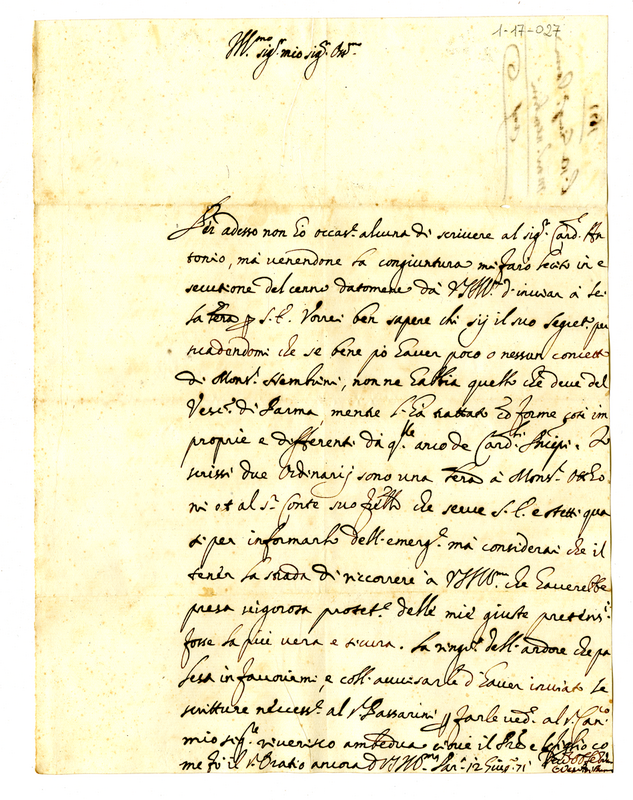 1-17-027
Ill.mo sig.r mio sig.r Oss.mo
Per adesso non hò occas.e alcuna di scrivere al sig.r Card.l An
tonio, mà venendone la congiuntura mi farò lecito in e
secutione del cenno datomene dà VS Ill.ma d'inviar à lei
la lra p S.E. Vorrei ben sapere chi sij il suo Segret.o per
suadendomi che se bene può haver poco o nessun concetto
di Mons.r Nembrini, non ne habbia quello che deve del
Vesc.o di Parma, mentre l'hà trattato con forme così im
proprie e differenti dà q.lle
scrissi due Ordinarij sono una lra à Mons.r Ottho
ni et al s.r Conte suo fr̃ello che serve S.E. e stetti qua
si per informarlo dell'emerg.e mà considerai che il
tener la strada di riccorrere à VS Ill.ma che haverebbe
presa vigorosa protet.e delle mie giuste pretens.i
fosse la più vera e sicura. La ringr.o dell'ardore che pa
lesa in favorirmi, e coll'avvisarla d'haver inviato le
scritture necess.e al s.r Passarini p farle ved.e al s.r Can.co
mio sig.re riverisco ambedua cioè il Pre e figlio co
me fò il s.r Oratio ancora D VS Ill.ma Par.a 12 Giug.o 71